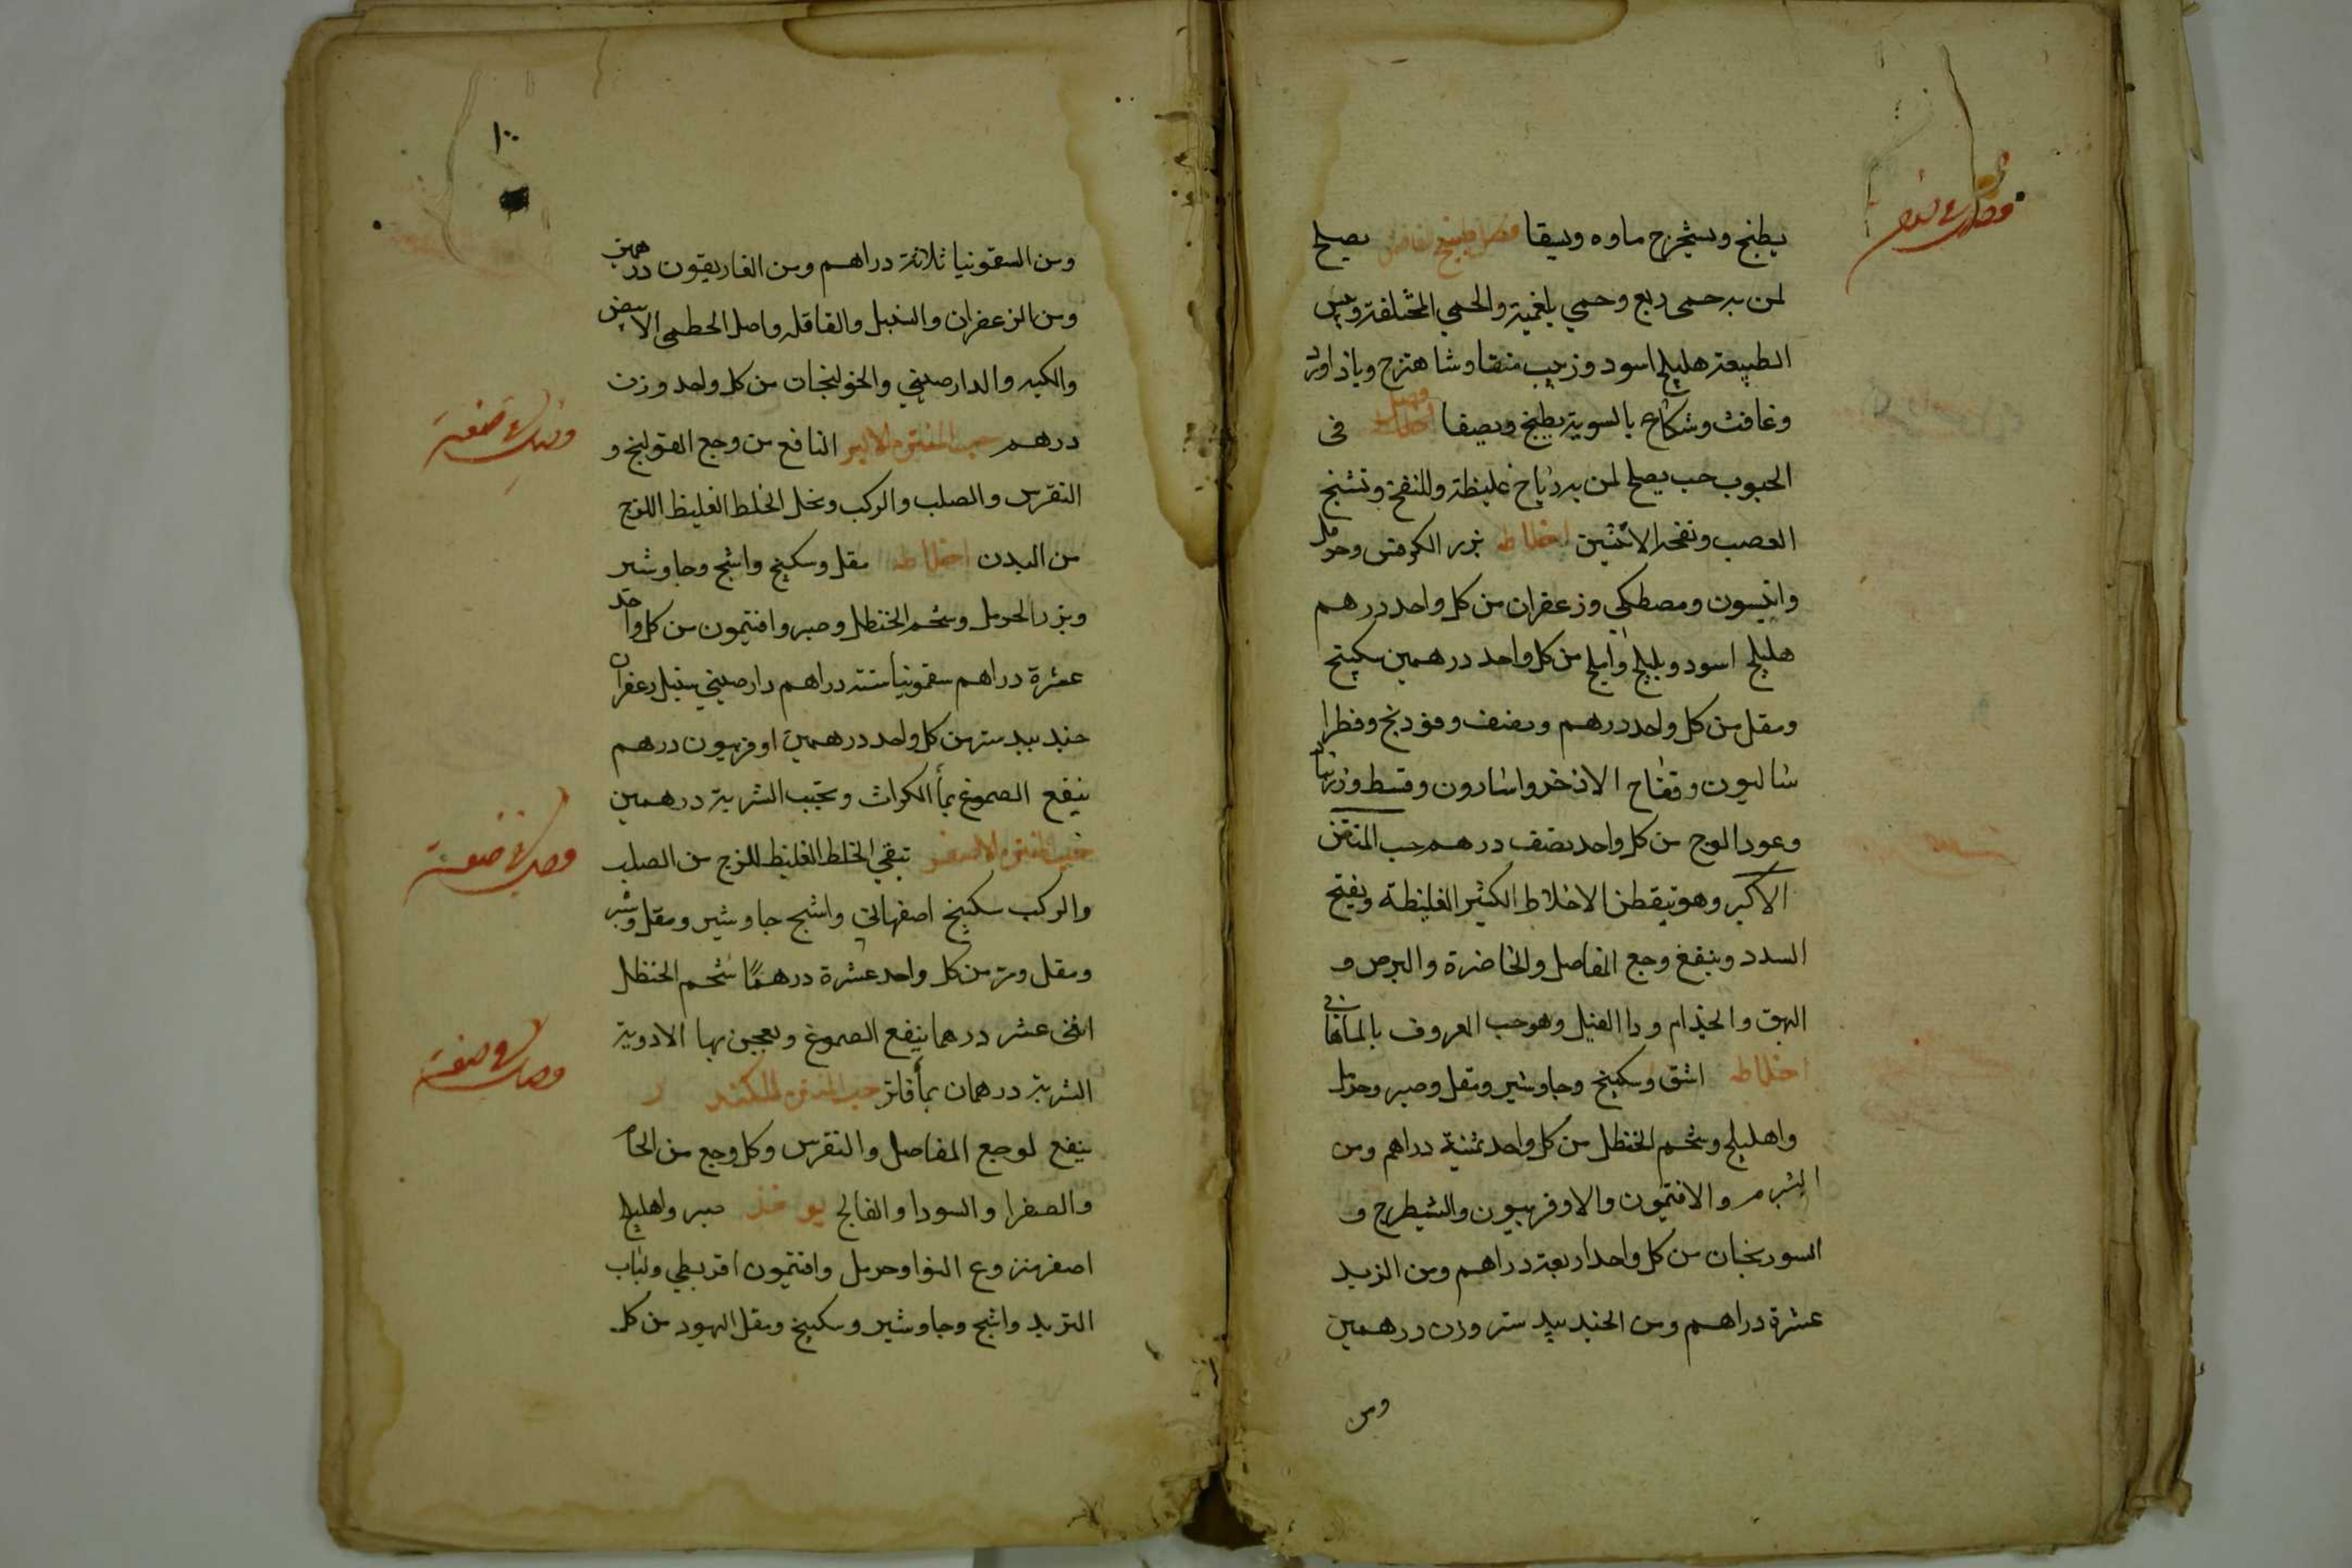 يطبخ ويستخرج ماوه ويسقا فصل طبيخ فاضل يصلح
لمن به حمى ربع وحمي بلغمية والحمي المختلفة ويبس
الطبيعة هليلج اسود وزبيب منقا وشاهترج وباذاورد
وغافت وشكاع بالسوية يطبخ ويصفا فصل في
الحبوب حب يصلح لمن به رياح غليظة وللنفخ وتشنج
العصب ونفخه الانثيين اخلاطه بزر الكرفس وحرمل
وانيسون ومصطكي وزعفران من كل واحد درهم
هليلج اسود وبليلج وامليج من كل واحد درهمين سكبينج
ومقل من كل واحد درهم ونصف وفودنج وفطرا
ساليون وفقاح الاذخر واسارون وقسط وزرنبا
وعود الوج من كل واحد نصف درهم حب المنتن
الاكبر وهو ينقطن الاخلاط الكثير الغليظة ويفتح
السدد وينفع وجع المفاصل والخاضرة والبرص و
البهق والجذام ودا الفيل وهو حب المعروف بالماهاني
اخلاطه اشق وسكبينج وجاوشير ومقل وصبر وحرمل
واهليلج وشحم الحنظل من كل واحد ثمنية دراهم ومن
الشبرم والافتيمون والاوفربيون والشيطرج و
السورنجان من كل واحد اربعة دراهم ومن الزبد
عشرة دراهم ومن الجندبيدستر وزن درهمين
ومن
١٠٠
ومن السقمونيا ثلاثة دراهم ومن الغاريقون درهمين
ومن الزعفران والسنبل والقاقله واصل الخطمى الابيض
والكبه والدارصيني والخولنجات من كل واحد وزن
درهم حب المنتن الاكبر النافع من وجع القولنج و
النقرس والصلب والركب ونحل الخلط الغليظ اللزج
من البدن اخلاطه مقل وسكبينج واشج وجاوشير
وبزر الحرمل وشحم الحنظل وصبر وافتيمون من كل واحد
عشرة دراهم سقمونيا ستة دراهم دارصيني سنبل زعفران
جندبيدستر من كل واحد درهمين اوفربيون درهم
ينقع الصموغ بمأ الكراث ويحبب الشربة درهمين
حب المنتن الاصغر تنقي الخلط الغليظ للزج من الصلب
والركب سكبينج اصفهاني واشج جاوشير ومقل
ومقل ومر من كل واحد عشرة درهمًا شحم الحنظل
اثنى عشر درهما ينقع الصموغ ويعجن بها الادوية
الشربة درهمان بمأ فاتر حب المنتن للكندي
ينفع لوجع المفاصل والنقرس وكل وجع من الخام
والصفرا والسودا والفالج يوخذ صبر واهليلج
اصفر منزوع النوا وحرمل وافتيمون اقريطي ولباب
التربد واشج وجاوشير وسكبينج ومقل اليهود من كل